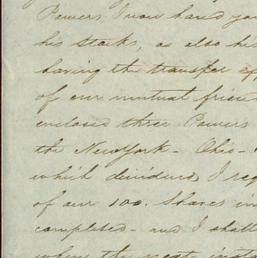 Powers, I now hand you
his stocks, as also his
having the transfer
of our mutual frien
enclosed three Powers
the New York - Ohio -
which dividend I re
of our 100. Shares in
completed - and I shall
when the next inst